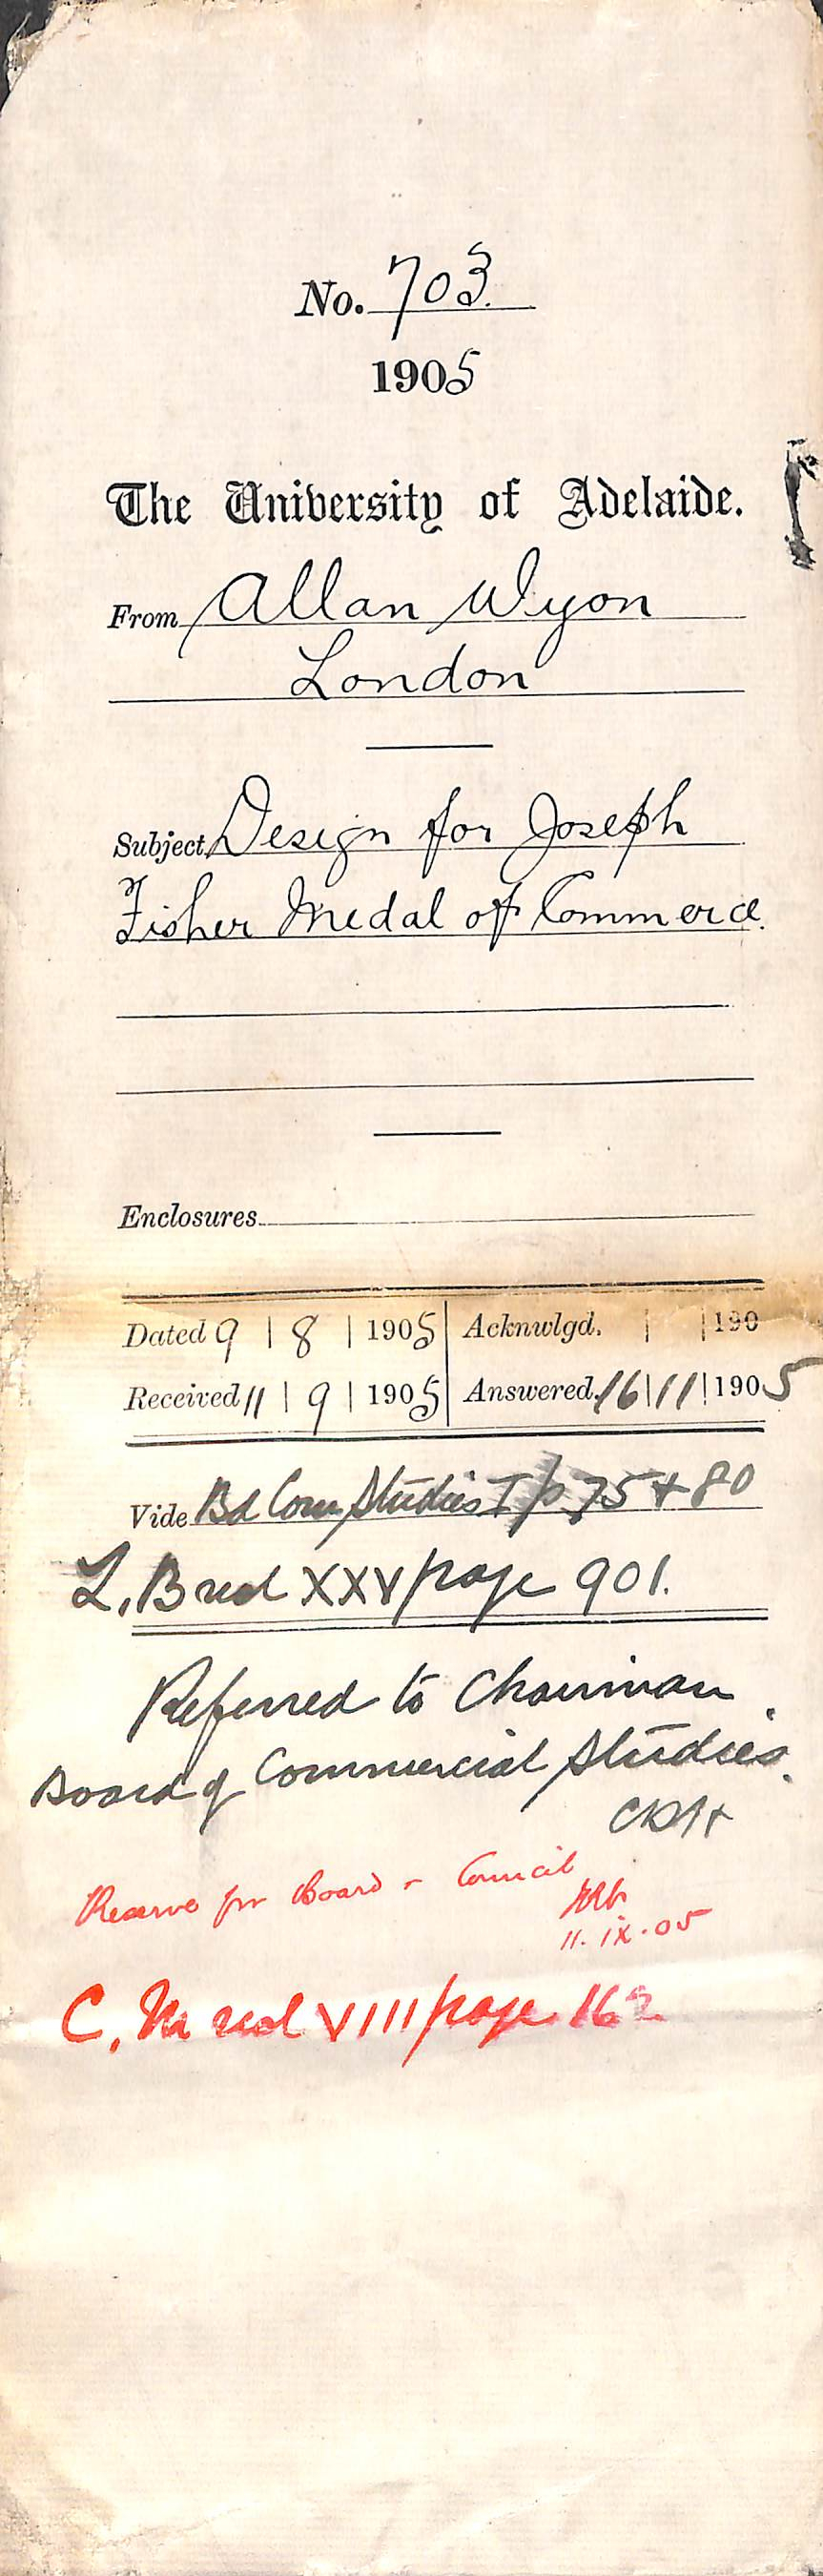 No. 703.
1905
The University of Adelaide.
From Allan Wyon
London
Subject Design for Joseph
Fisher Medal of Commerce.
Enclosures
Dated 9 | 8 | 1905 Acknwlgd. | | 190
Received 11 | 9 | 1905 Answered. 16 | 11 | 1905
Vide Bd Com Studies I p 75 + 80
L. B red XXV page 901.
Referred to Chairman
Board of Commercial Studies.
Reserve for Board + Council
11. IX. 05
C. M red VIII page